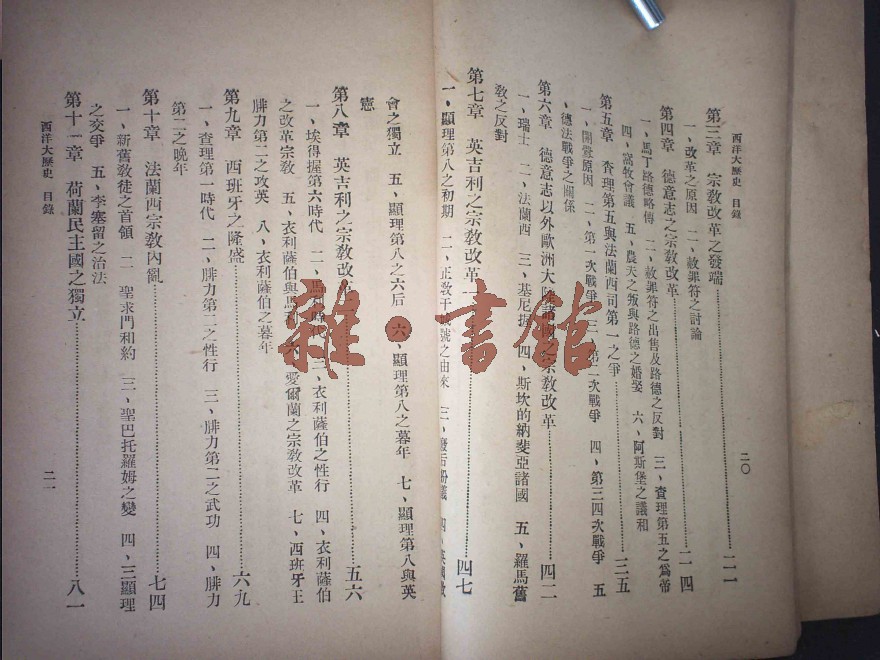 西洋大歷史 目錄
二〇
第三章 宗敎改革之發端……二一
一、改革之原因 二、赦罪符之討論
第四章 德意志之宗敎改革……二四
一、馬丁路德略傳 二、赦罪符之出售及路德之反對 三、查理第五之爲帝
四、窩牧會議 五、農夫之叛與路德之婚娶 六、阿斯堡之議和
第五章 查理第五與法蘭西司第一之爭……三五
一、開釁原因 二、第一次戰爭 三、第二次戰爭 四、第三四次戰爭 五
、德法戰爭之關係
第六章 德意志以外歐洲大陸諸國之宗敎改革……四二
一、瑞士 二、法蘭西 三、基尼 四、斯坎的納斐亞諸國 五、羅馬舊
敎之反對
第七章 英吉利之宗敎改革……四七
一、顯理第八之初期 二、正敎干 號之由來 三、廢后 議 四、英國敎
會之獨立 五、顯理第八之六后 六、顯理第八之暮年 七、顯理第八與英
憲
第八章 英吉利之宗敎改革……五六
一、埃得握第六時代 二、馬利時代 三、衣利薩伯之性行 四、衣利薩伯
之改革宗敎 五、衣利薩伯與馬利 六、愛爾蘭之宗敎改革 七、西班牙王
腓力第二之攻英 八、衣利薩伯之暮年
第九章 西班牙之隆盛……六九
一、查理第一時代 二、腓力第二之性行 三、腓力第二之武功 四、腓力
第二之晚年
第十章 法蘭西宗敎內亂……七四
一、新舊敎徒之首領 二 聖求門和約 三、聖巴托羅姆之變 四、三顯理
之交爭 五、李塞留之治法
第十一章 荷蘭民主國之獨立……八一
西洋大歷史 目錄
二一
雜·書館